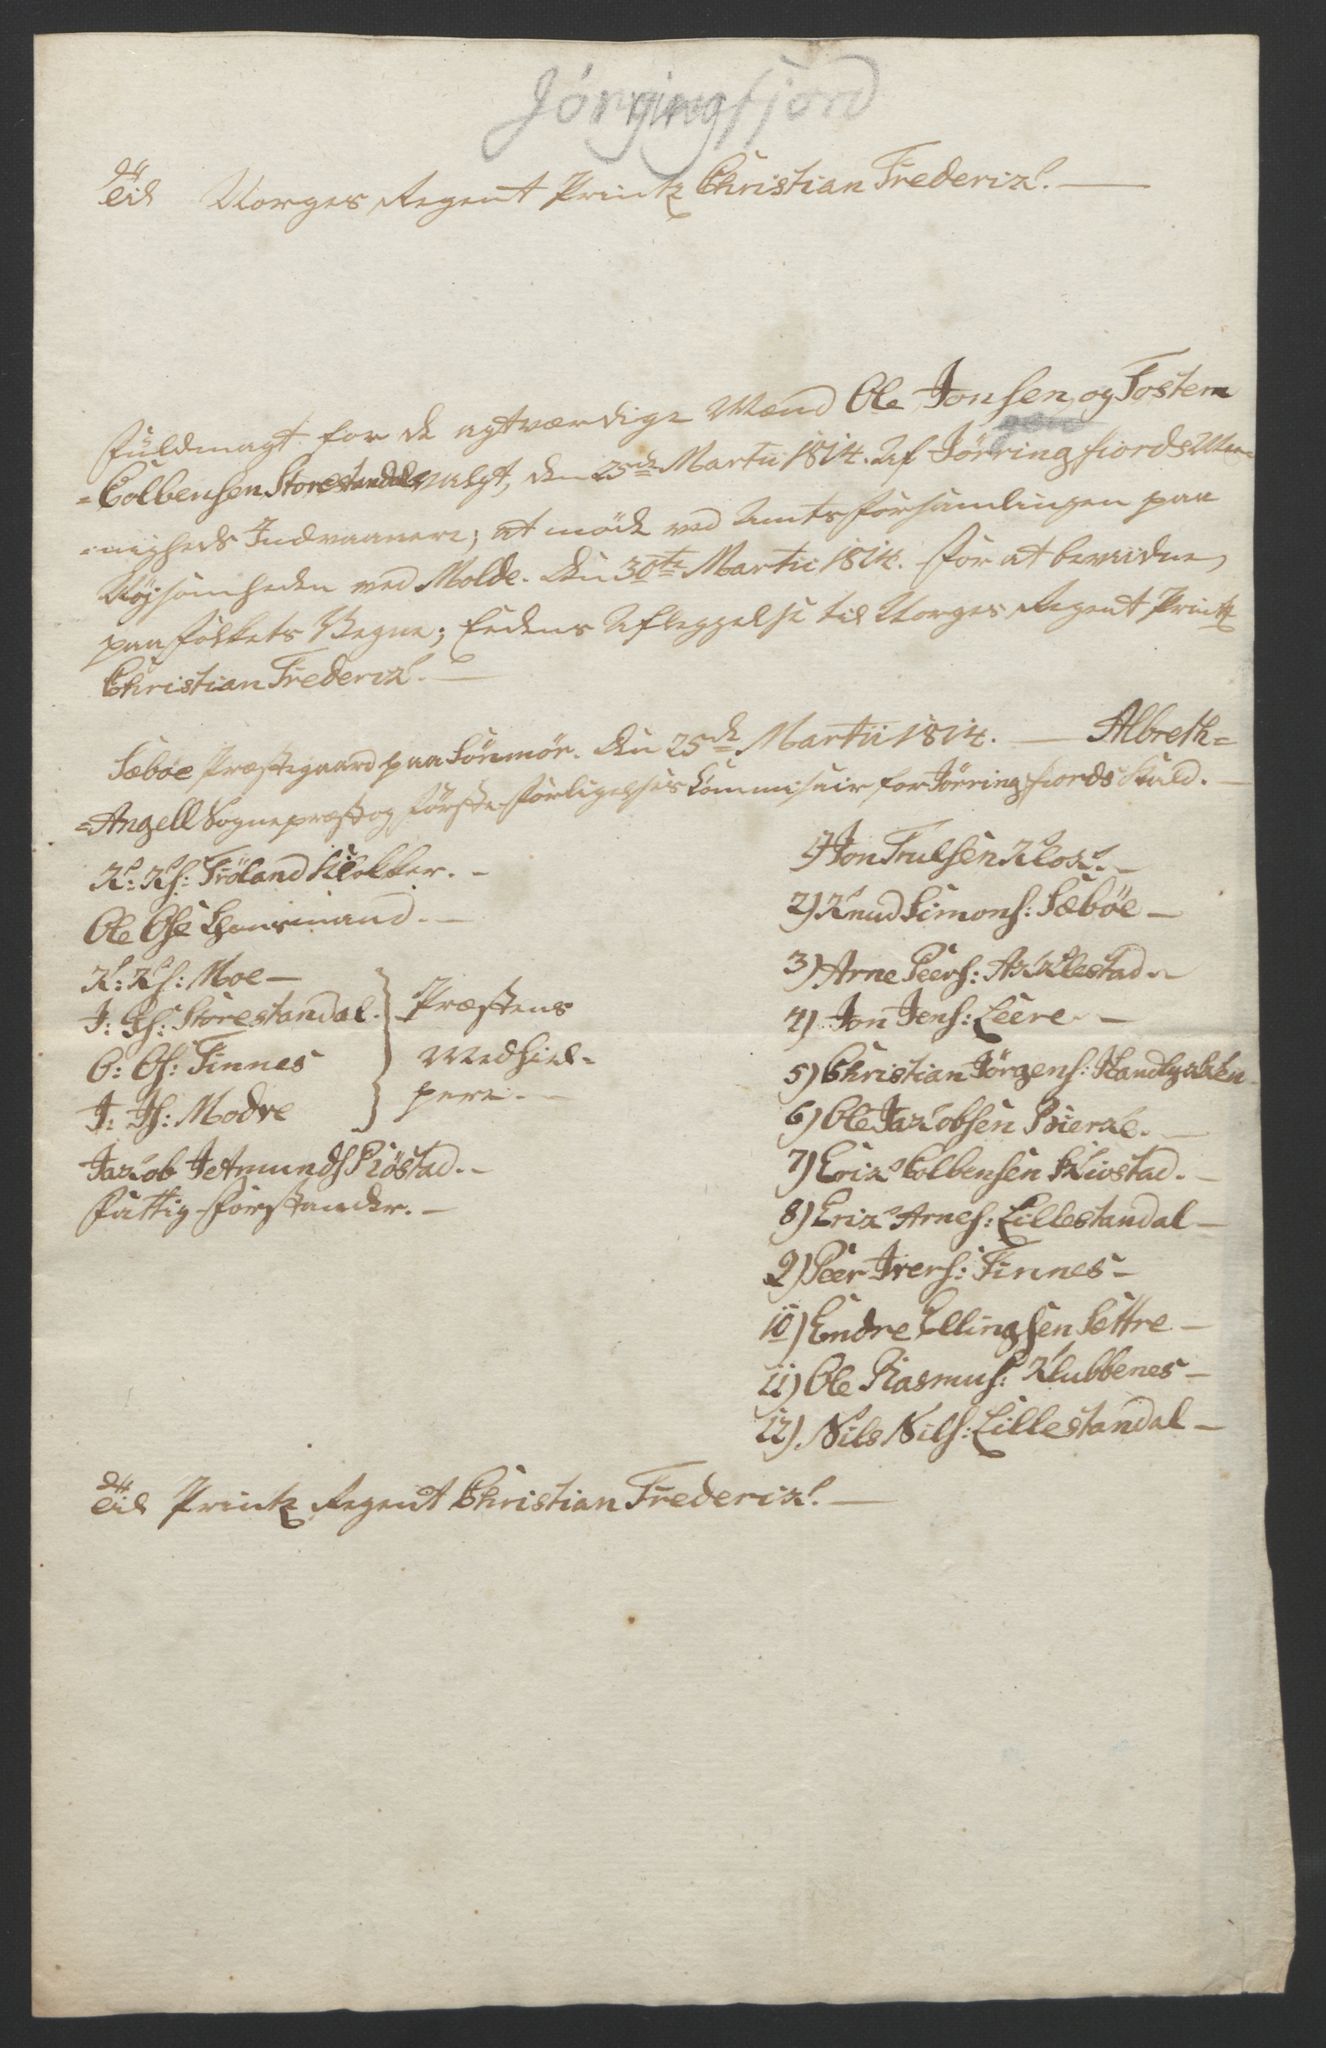 Jörgingfjord
Til Norges Regent Printz Christian Frederik. —
Fuldmagt for de agtværdige Mænd Ole Jonsen og Tosten
=Colbensen Storestandal valgt, den 25de Martii 1814. Af Jörringfiords Me-
=nigheds Indvaanere; at möde ved Amtsforsamlingen paa
Nöjsomheden ved Molde. Den 30te Martii 1814. for at bevidne,
paa Folkets Vegne; Eedens Aflæggelse til Norges Regent Printz
Christian Frederik. —
Sæböe Præstegaard paa Sönmör. Den 25de Martii 1814. — Albreth=
=Angell Sognepræst og förste Forligelses Commissair for Jörringfiords Kald. —
K: Ks: Fröland Klokker. —
Ole Ose Lehnsmand. —
K: Ks: Moe —
J: Js: Storestandal.
O: Os: Finnes
J: Js: Modre
Præstens
Medhiel-
pere. —
Jacob Jetmunds Riöstad. —
Fattig-Forstander. —
1) Jon Trulsen Klok. —
2) Knud Simons: Sæböe —
3) Arne Peers: Aklestad —
4) Jon Jens: Leere. —
5) Christian Jörgens:
6) Ole Jacobsen —
7) Erik Colbensen —
8) Erik Arnes: Lillestandal —
9) Peer Ivers: Finnes —
10) Endre Ellingsen Sættre —
11) Ole Rasmus: Klubbenes —
12) Nils Nils: Lillestandal —
Til Printz Regent Christian Frederik. —